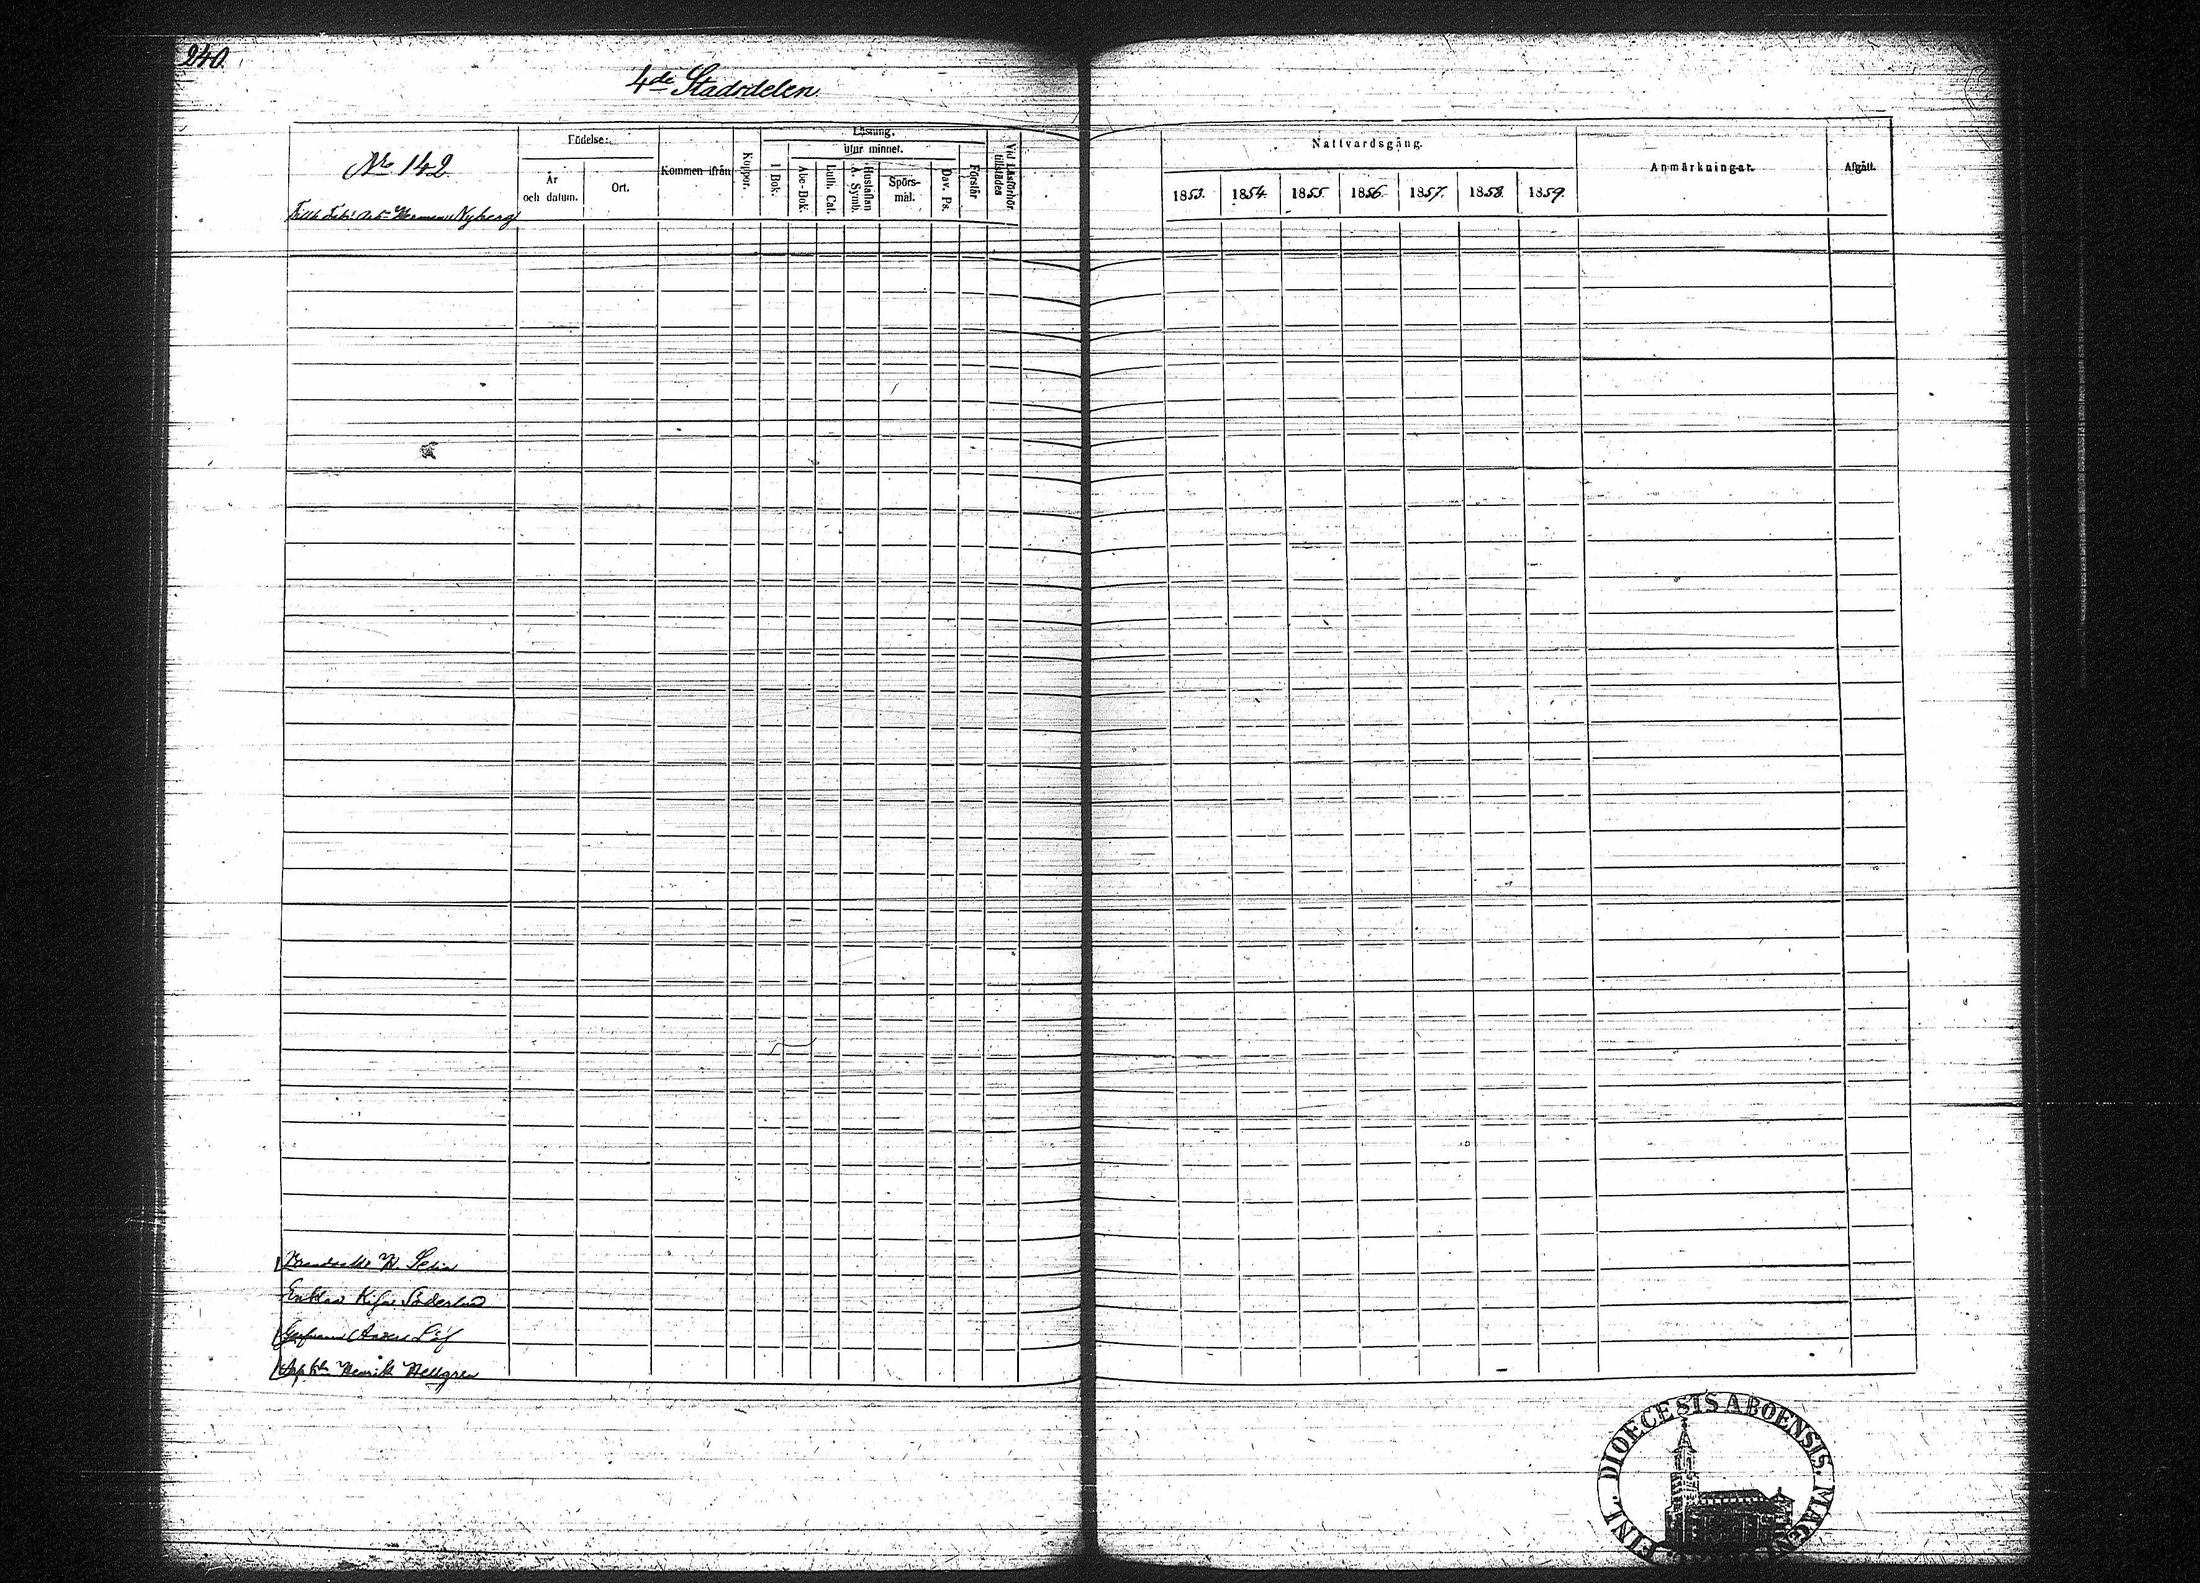 240.
4de Stadsdelen.
No 142.
Nyberg
Födelse:
År och datum.
Ort.
Kommen ifrån
Koppor.
Läsning.
I Bok.
utur minnet.
Abc-Bok.
Luth. Cat.
Hustaflan A. Symb.
Spörs-mål.
Dav. Ps.
Förstår
Vid Läsförhör. tillstädes
Nattvardsgång.
1853. 1854. 1855. 1856. 1857. 1858. 1859.
Anmärkningar.
Afgått.
Enkan Söderlund
Anders Löf
Henrik Hellgren
DIOECESIS ABOENSIS. MAGNI FINL.